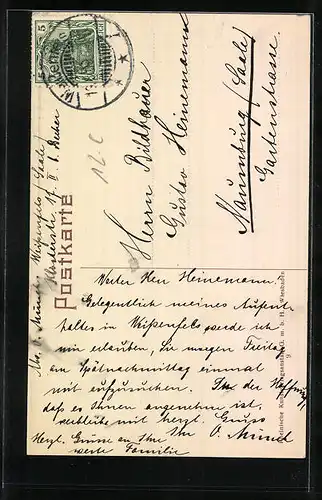 5
Weißenfels
Postkarte
Herrn Bildhauer
Gustav Heinemann
Naumburg (Saale)
Gartenstrasse.
12 C
Abs. O. Münch, Weißenfels (Saale)
Werter Herr Heinemann!
Gelegentlich meines Aufent
haltes in Weißenfels werde ich
mir erlauben, Sie morgen Freitag
am Spätnachmittag einmal
mit aufzusuchen. In der Hoffnung
daß es Ihnen angenehm ist,
verbleibe mit herzl. Gruss
Ihr O. Münch
Herzl. Grüsse an Ihre
werte Familie
m. b. H. Wiesbaden